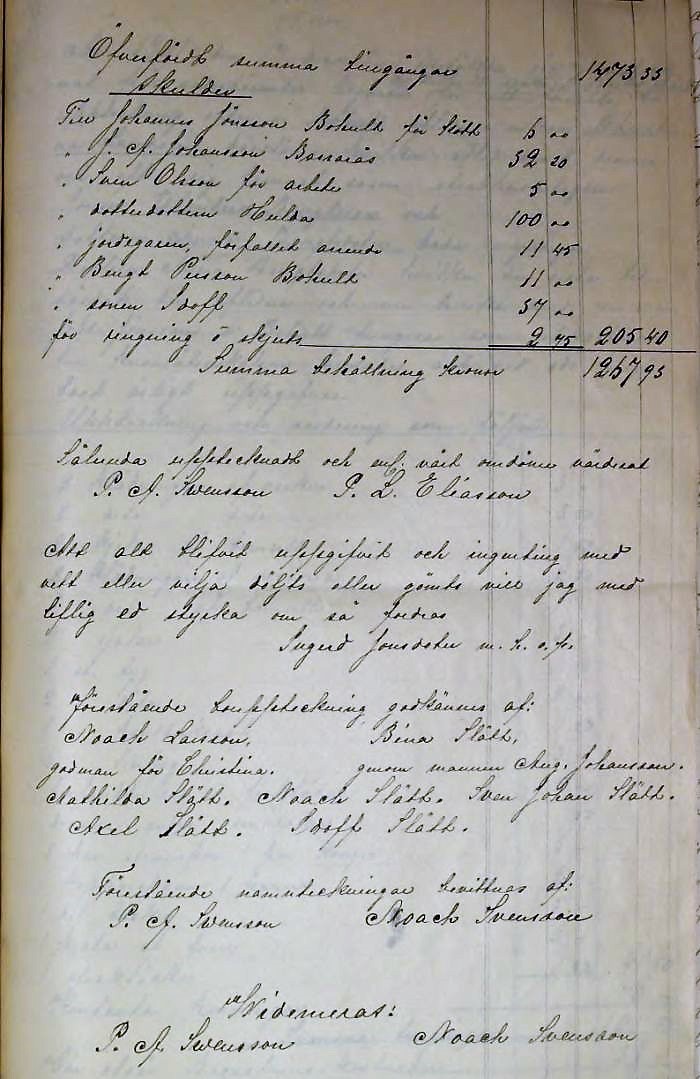 Öfverfördt summa tingångar 1473 33
Skulder
Till Johannes Jönsson Bokult för Slått 6 00
" J. A. Johansson 32 20
" Sven Olsson för arbete 5 00
" dotterdottern Hulda 100 00
" jordegaren, förfallet arrende 11 45
" Bengt Persson Bokult 11 00
" sonen Idoff 37 00
för ringning o skjuts 2 75 205 40
Summa behållning kronor 1267 93
Sålunda upptecknadt och enl. vårt omdöme värderat
P. A. Swensson P. L. Eliasson
Att alt blifvit uppgifvit och ingenting med
vett eller vilja döljts eller gömts vill jag med
liflig ed styrka om så fordras
Ingerd Jonsdoter m. h. o. p.
Förestående bouppteckning godkännes af:
Noach Larsson, Bina Slätt,
godman för Christina. genom mannen Aug. Johansson.
Mathilda Slätt. Noach Slätt. Sven Johan Slätt.
Axel Slätt. Idoff Slätt.
Förestående namnteckningar bevittnas af:
P. A. Swensson Noach Svensson
Widimeras:
P. A. Swensson Noach Svensson